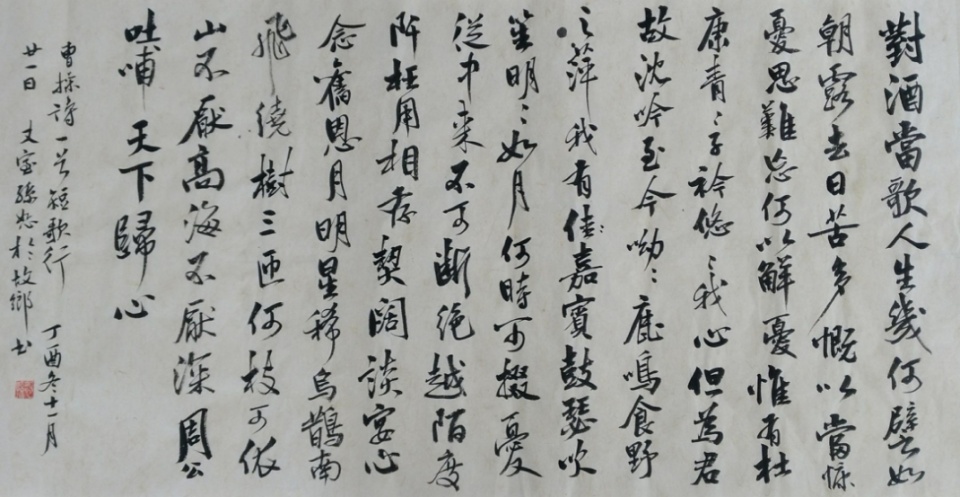 對酒當歌人生幾何譬如
朝露去日苦多慨以當慷
憂思難忘何以解憂惟有杜
康青〻子衿悠〻我心但為君
故沈吟至今呦〻鹿鳴食野
之萍我有佳嘉賓鼓瑟吹
笙明〻如月何時可掇憂
從中來不可斷絕越陌度
阡枉用相存契闊談宴心
念舊恩月明星稀烏鵲南
飛繞樹三匝何枝可依
山不厭高海不厭深周公
吐哺天下歸心
曹操詩一首短歌行 丁酉冬十一月
廿一日 於故鄉書